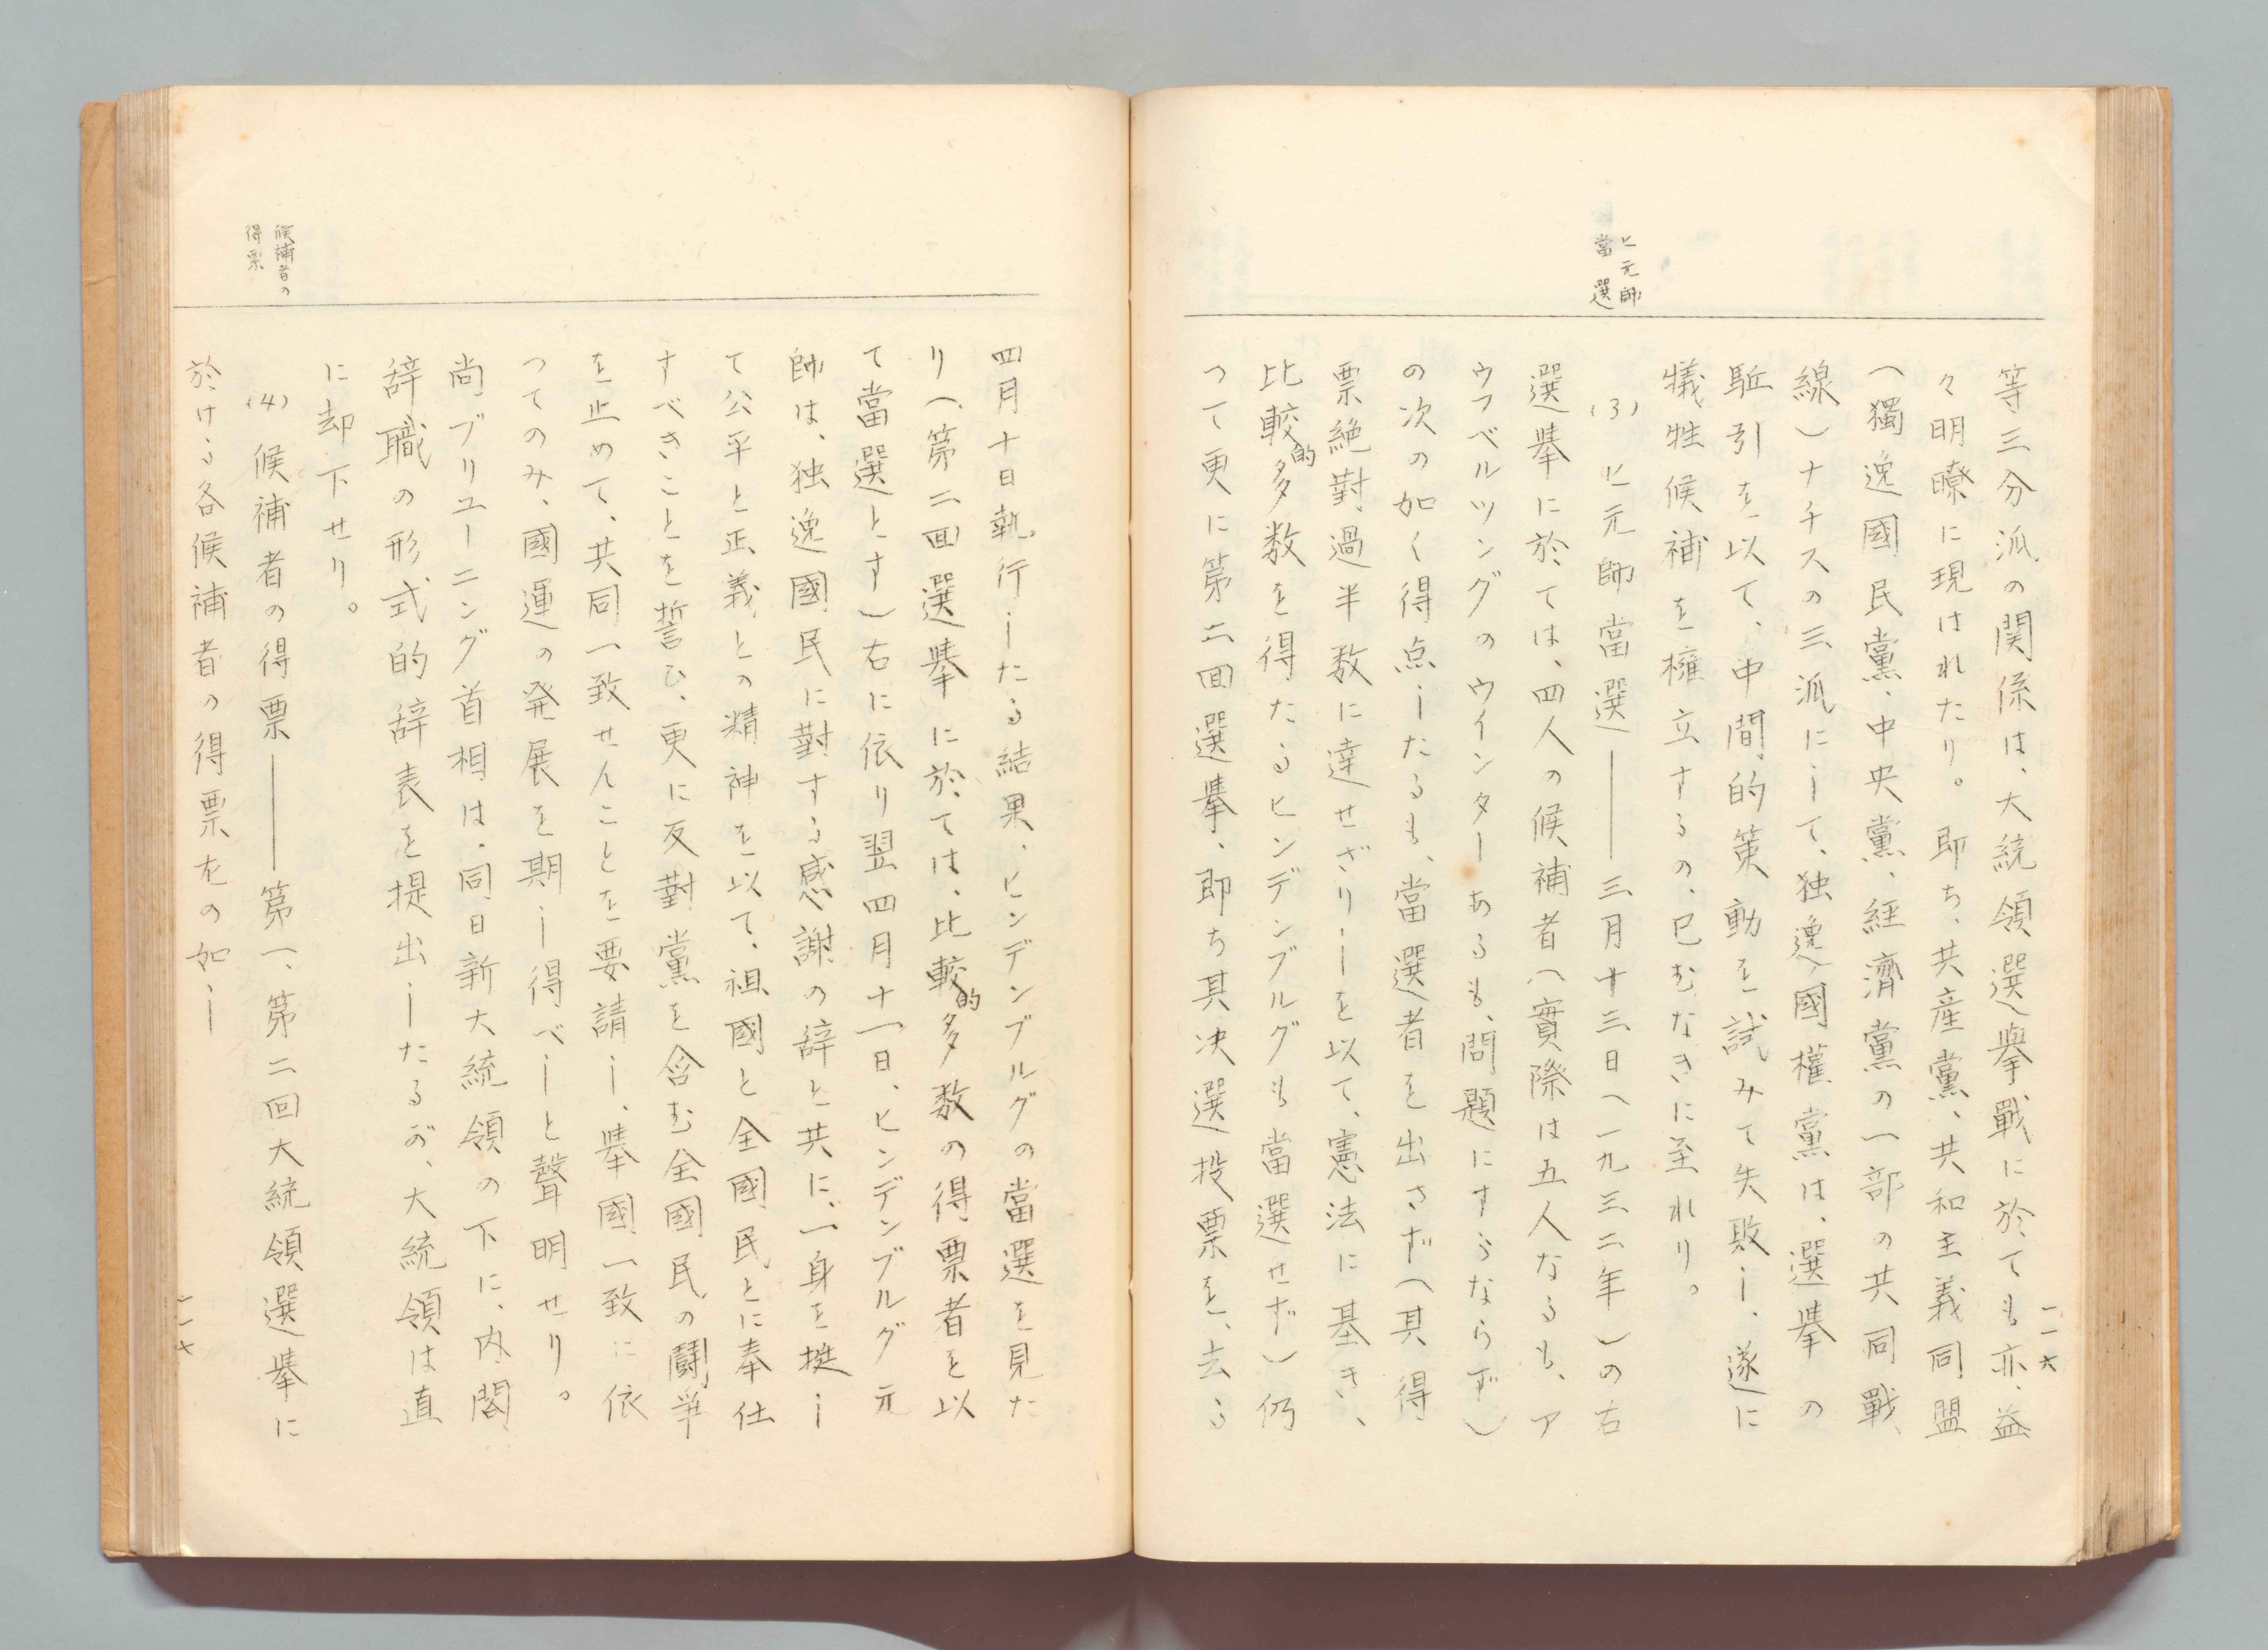 ヒ元帥
當選
等三分派の関係は、大統領選擧戰に於ても亦、益
々明瞭に現はれたり。即ち、共産黨、共和主義同盟
(獨逸國民黨、中央黨、経濟黨の一部の共同戰
線)ナチスの三派にして、独逸國權黨は、選挙の
駈引を以て、中間的策動を試みて失敗し、遂に
犠牲候補を擁立するの、已むなきに至れり。
(3) ヒ元帥當選――三月十三日(一九三二年)の右
選挙に於ては、四人の候補者(實際は五人なるも、ア
ウフベルツングのウインターあるも、問題にすらならず)
の次の如く得点したるも、當選者を出さず(其得
票絶對過半数に達せざりしを以て、憲法に基き、
比較的多数を得たるヒンデンブルグも當選せず)仍
つて更に第二回選挙、即ち其决選投票を、去る
一一六
候補者の
得票
四月十日執行したる結果、ヒンデンブルグの當選を見た
り(第二回選挙に於ては、比較的多数の得票者を以
て當選とす)右に依り翌四月十一日、ヒンデンブルグ元
帥は、独逸國民に對する感謝の辞と共に、一身を挺し
て公平と正義との精神を以て、祖國と全國民とに奉仕
すべきことを誓ひ、更に反對黨を含む全國民の闘爭
を止めて、共同一致せんことを要請し、挙國一致に依
つてのみ、國運の発展を期し得べしと聲明せり。
尚ブリユーニング首相は、同日新大統領の下に、内閣
辞職の形式的辞表を提出したるが、大統領は直
に却下せり。
(4) 候補者の得票――第一、第二回大統領選挙に
於ける各候補者の得票左の如し
一一七